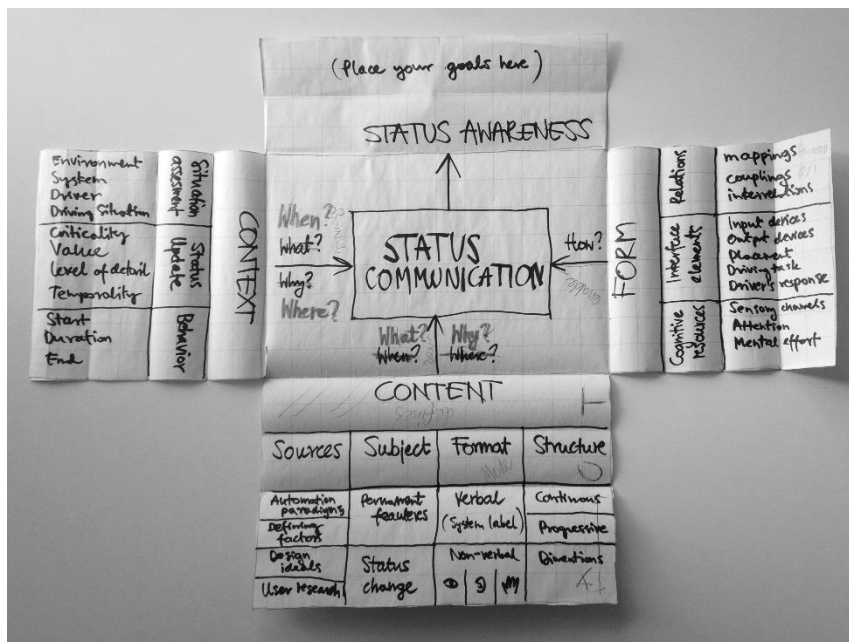 (Place your goals here)
STATUS AWARENESS
Environment
System
Driver
Driving Situation
Situation
assesment
Criticality
Value
Level of detail
Temporality
Status
Update
Start
Duration
End
Behavior
CONTEXT
When?
What?
Why?
Where?
STATUS
COMMUNICATION
How?
What? Why?
When? Where?
FORM
Relations
mappings
couplings
interventions
Interface
elements
Input devices
Output devices
Placement
Driving task
Driver's response
Cognitive
resources
Sensory channels
Attention
Mental effort
CONTENT
defines
Sources Subject Format Structure
Automation
paradigms
Defining
factors
Design
ideals
User research
Permanent
features
Status
change
Verbal
(System label)
Non-verbal
Continous
Progressive
Dimentions